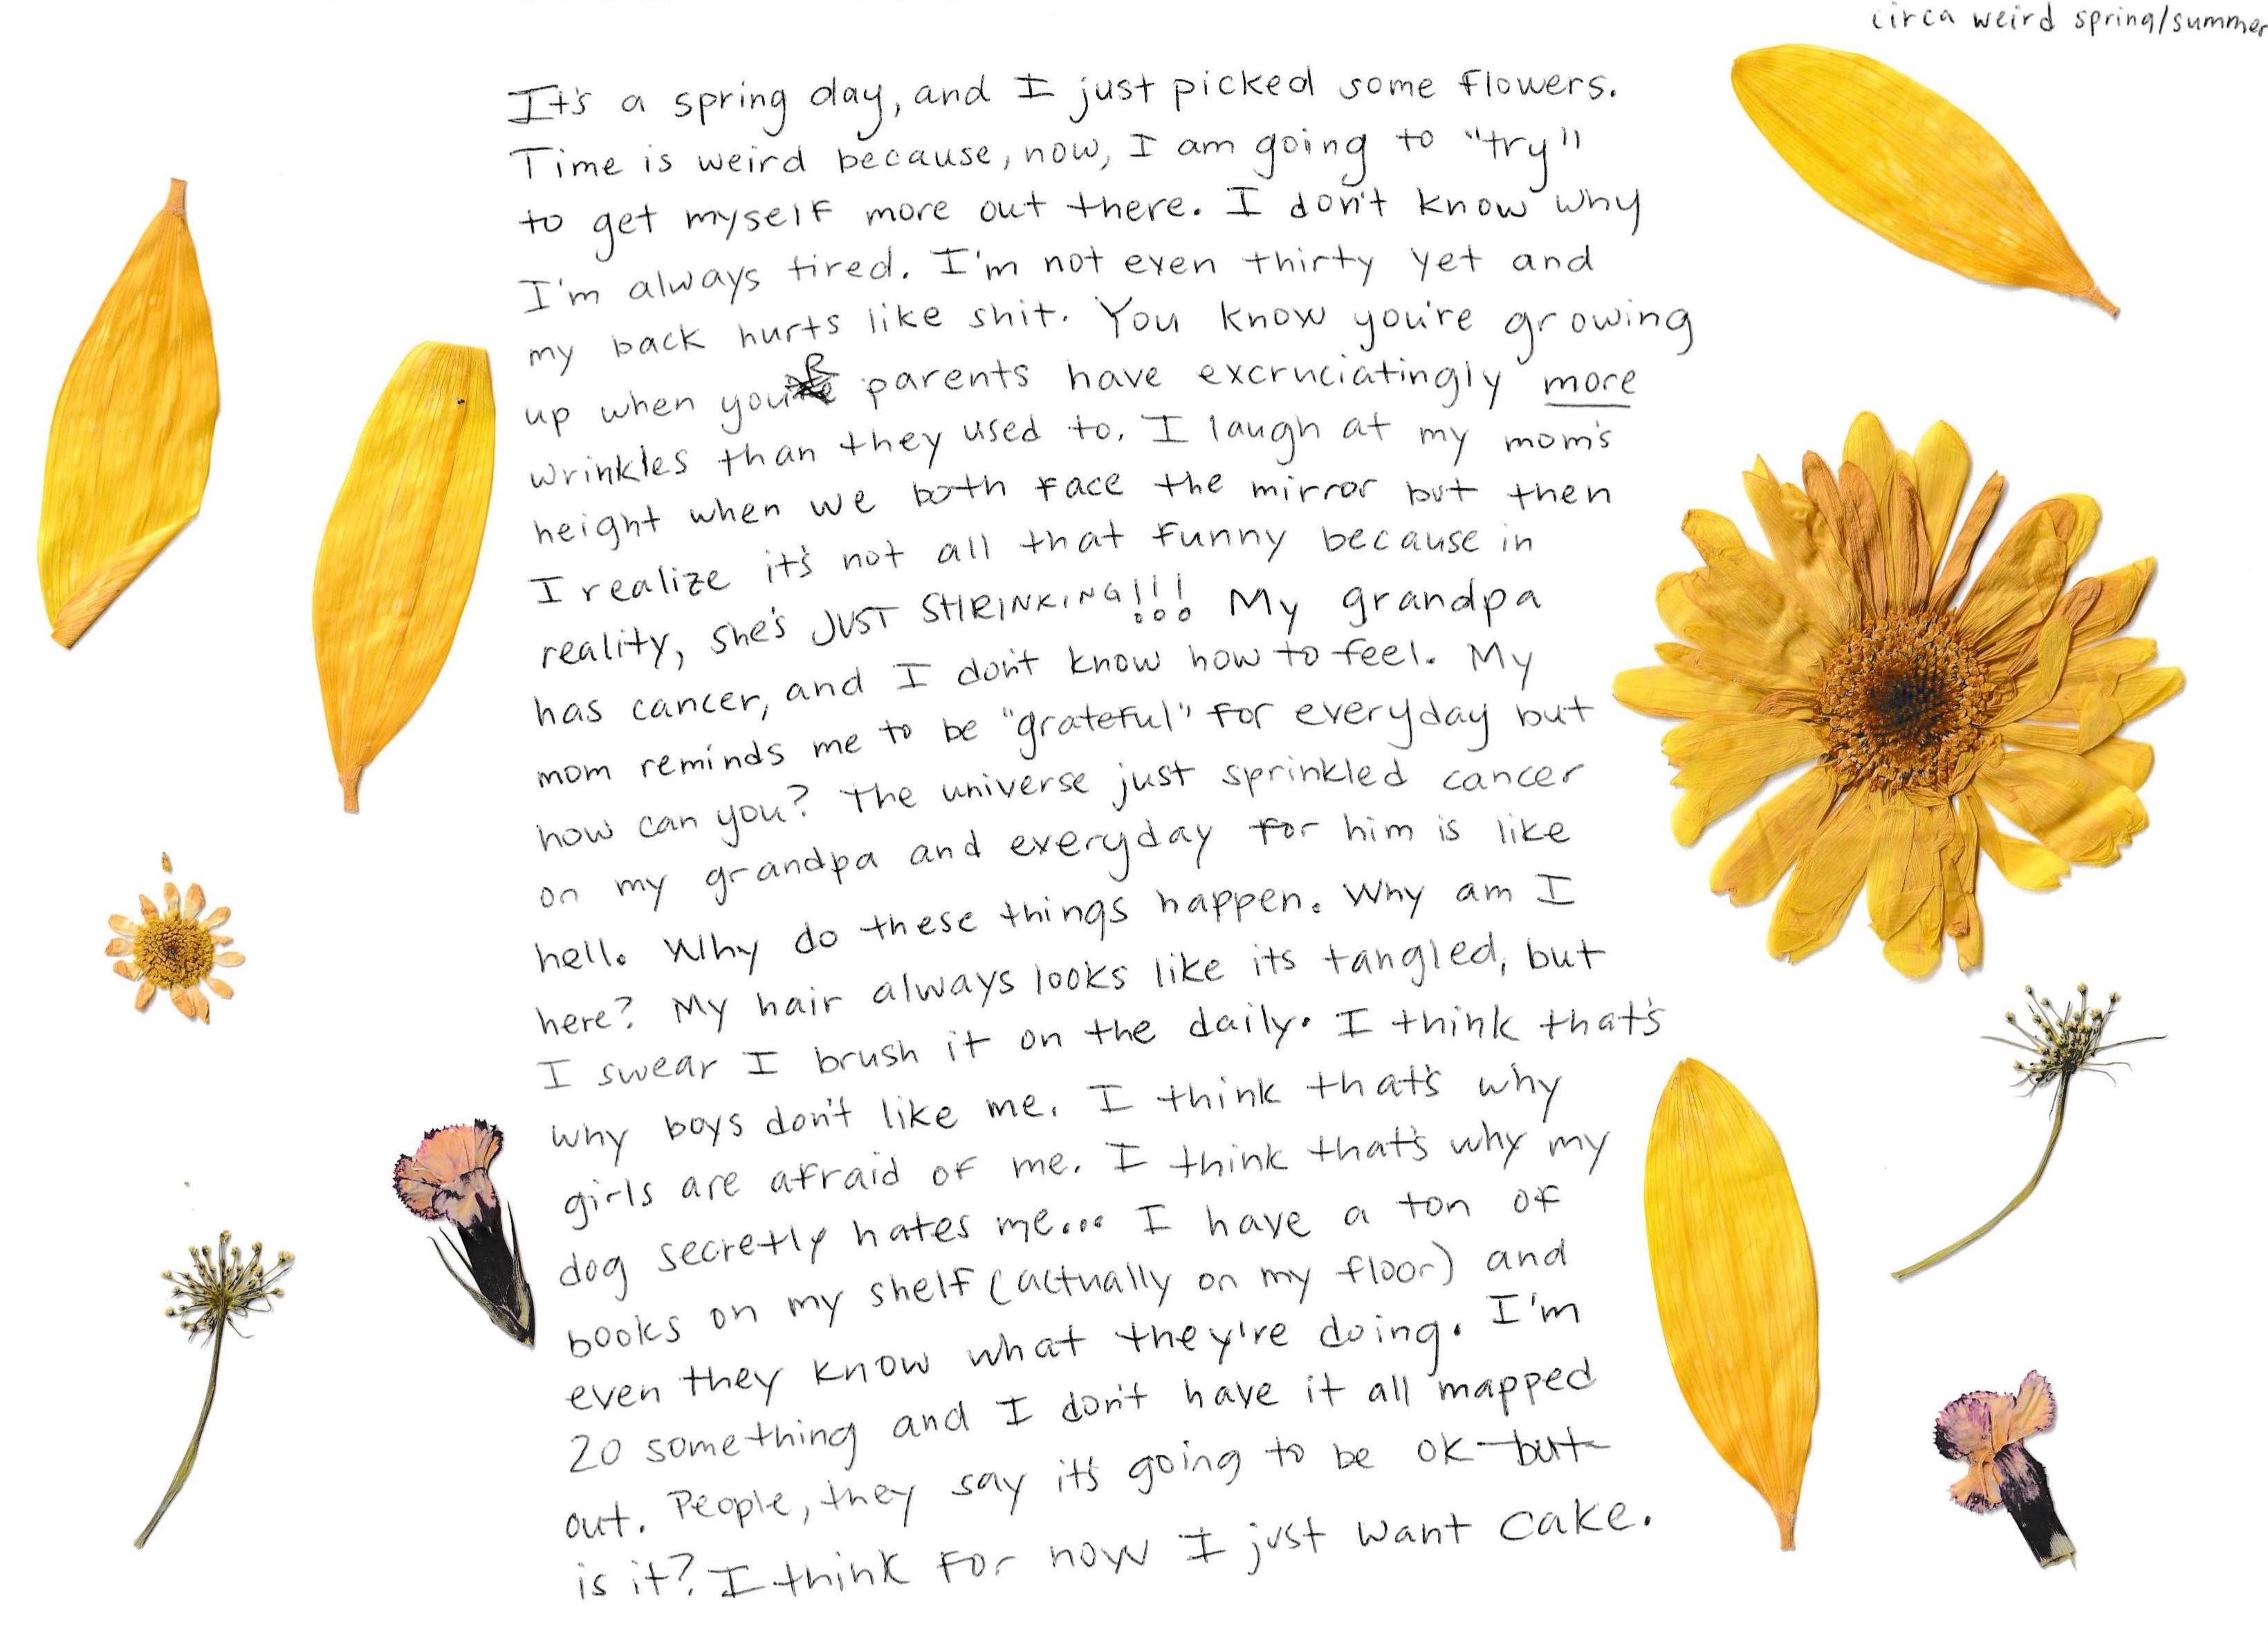 circa weird spring/summer
It's a spring day, and I just picked some flowers.
Time is weird because, now, I am going to "try"
to get myself more out there. I don't know why
I'm always tired. I'm not even thirty yet and
my back hurts like shit. You know you're growing
up when your parents have excruciatingly more
wrinkles than they used to. I laugh at my mom's
height when we both face the mirror but then
I realize it's not all that funny because in
reality, she's JUST SHRINKING!!! My grandpa
has cancer, and I don't know how to feel. My
mom reminds me to be "grateful" for everyday but
how can you? The universe just sprinkled cancer
on my grandpa and everyday for him is like
hell. Why do these things happen. Why am I
here? My hair always looks like its tangled, but
I swear I brush it on the daily. I think that's
why boys don't like me. I think that's why
girls are afraid of me. I think that's why my
dog secretly hates me... I have a ton of
books on my shelf (actually on my floor) and
even they know what they're doing. I'm
20 something and I don't have it all mapped
out. People, they say it's going to be ok but
is it? I think for now I just want cake.